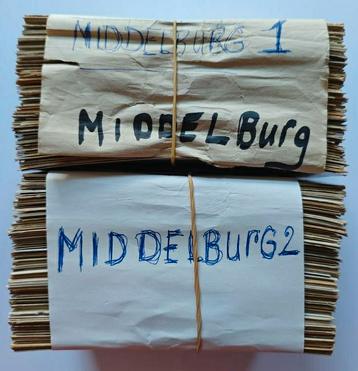 MIDDELBURG 1
MIDDELBurg
MIDDELBUrG2